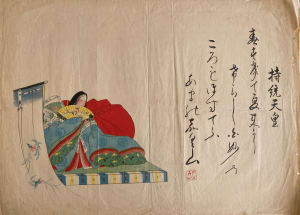 持統天皇
春すぎて夏来に
けらし白妙の
ころもほすてふ
あまの香具山